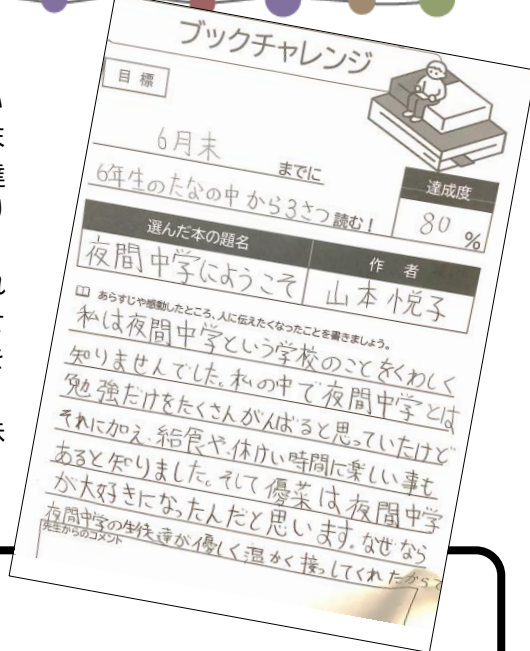 ブックチャレンジ
目標
6月末 までに
6年生のたなの中から3さつ 読む!
達成度
80 %
選んだ本の題名
作者
夜間中学にようこそ
山本悦子
あらすじや感動したところ、人に伝えたくなったことを書きましょう。
私は夜間中学という学校のことをくわしく
知りませんでした。私の中で夜間中学とは
勉強だけをたくさんがんばると思っていたけど
それに加え、給食や、休けい時間に楽しい事も
あると知りました。そして優菜は夜間中学
が大好きになったんだと思います。なぜなら
夜間中学の生徒達が優しく温かく接してくれたからで
先生からのコメント